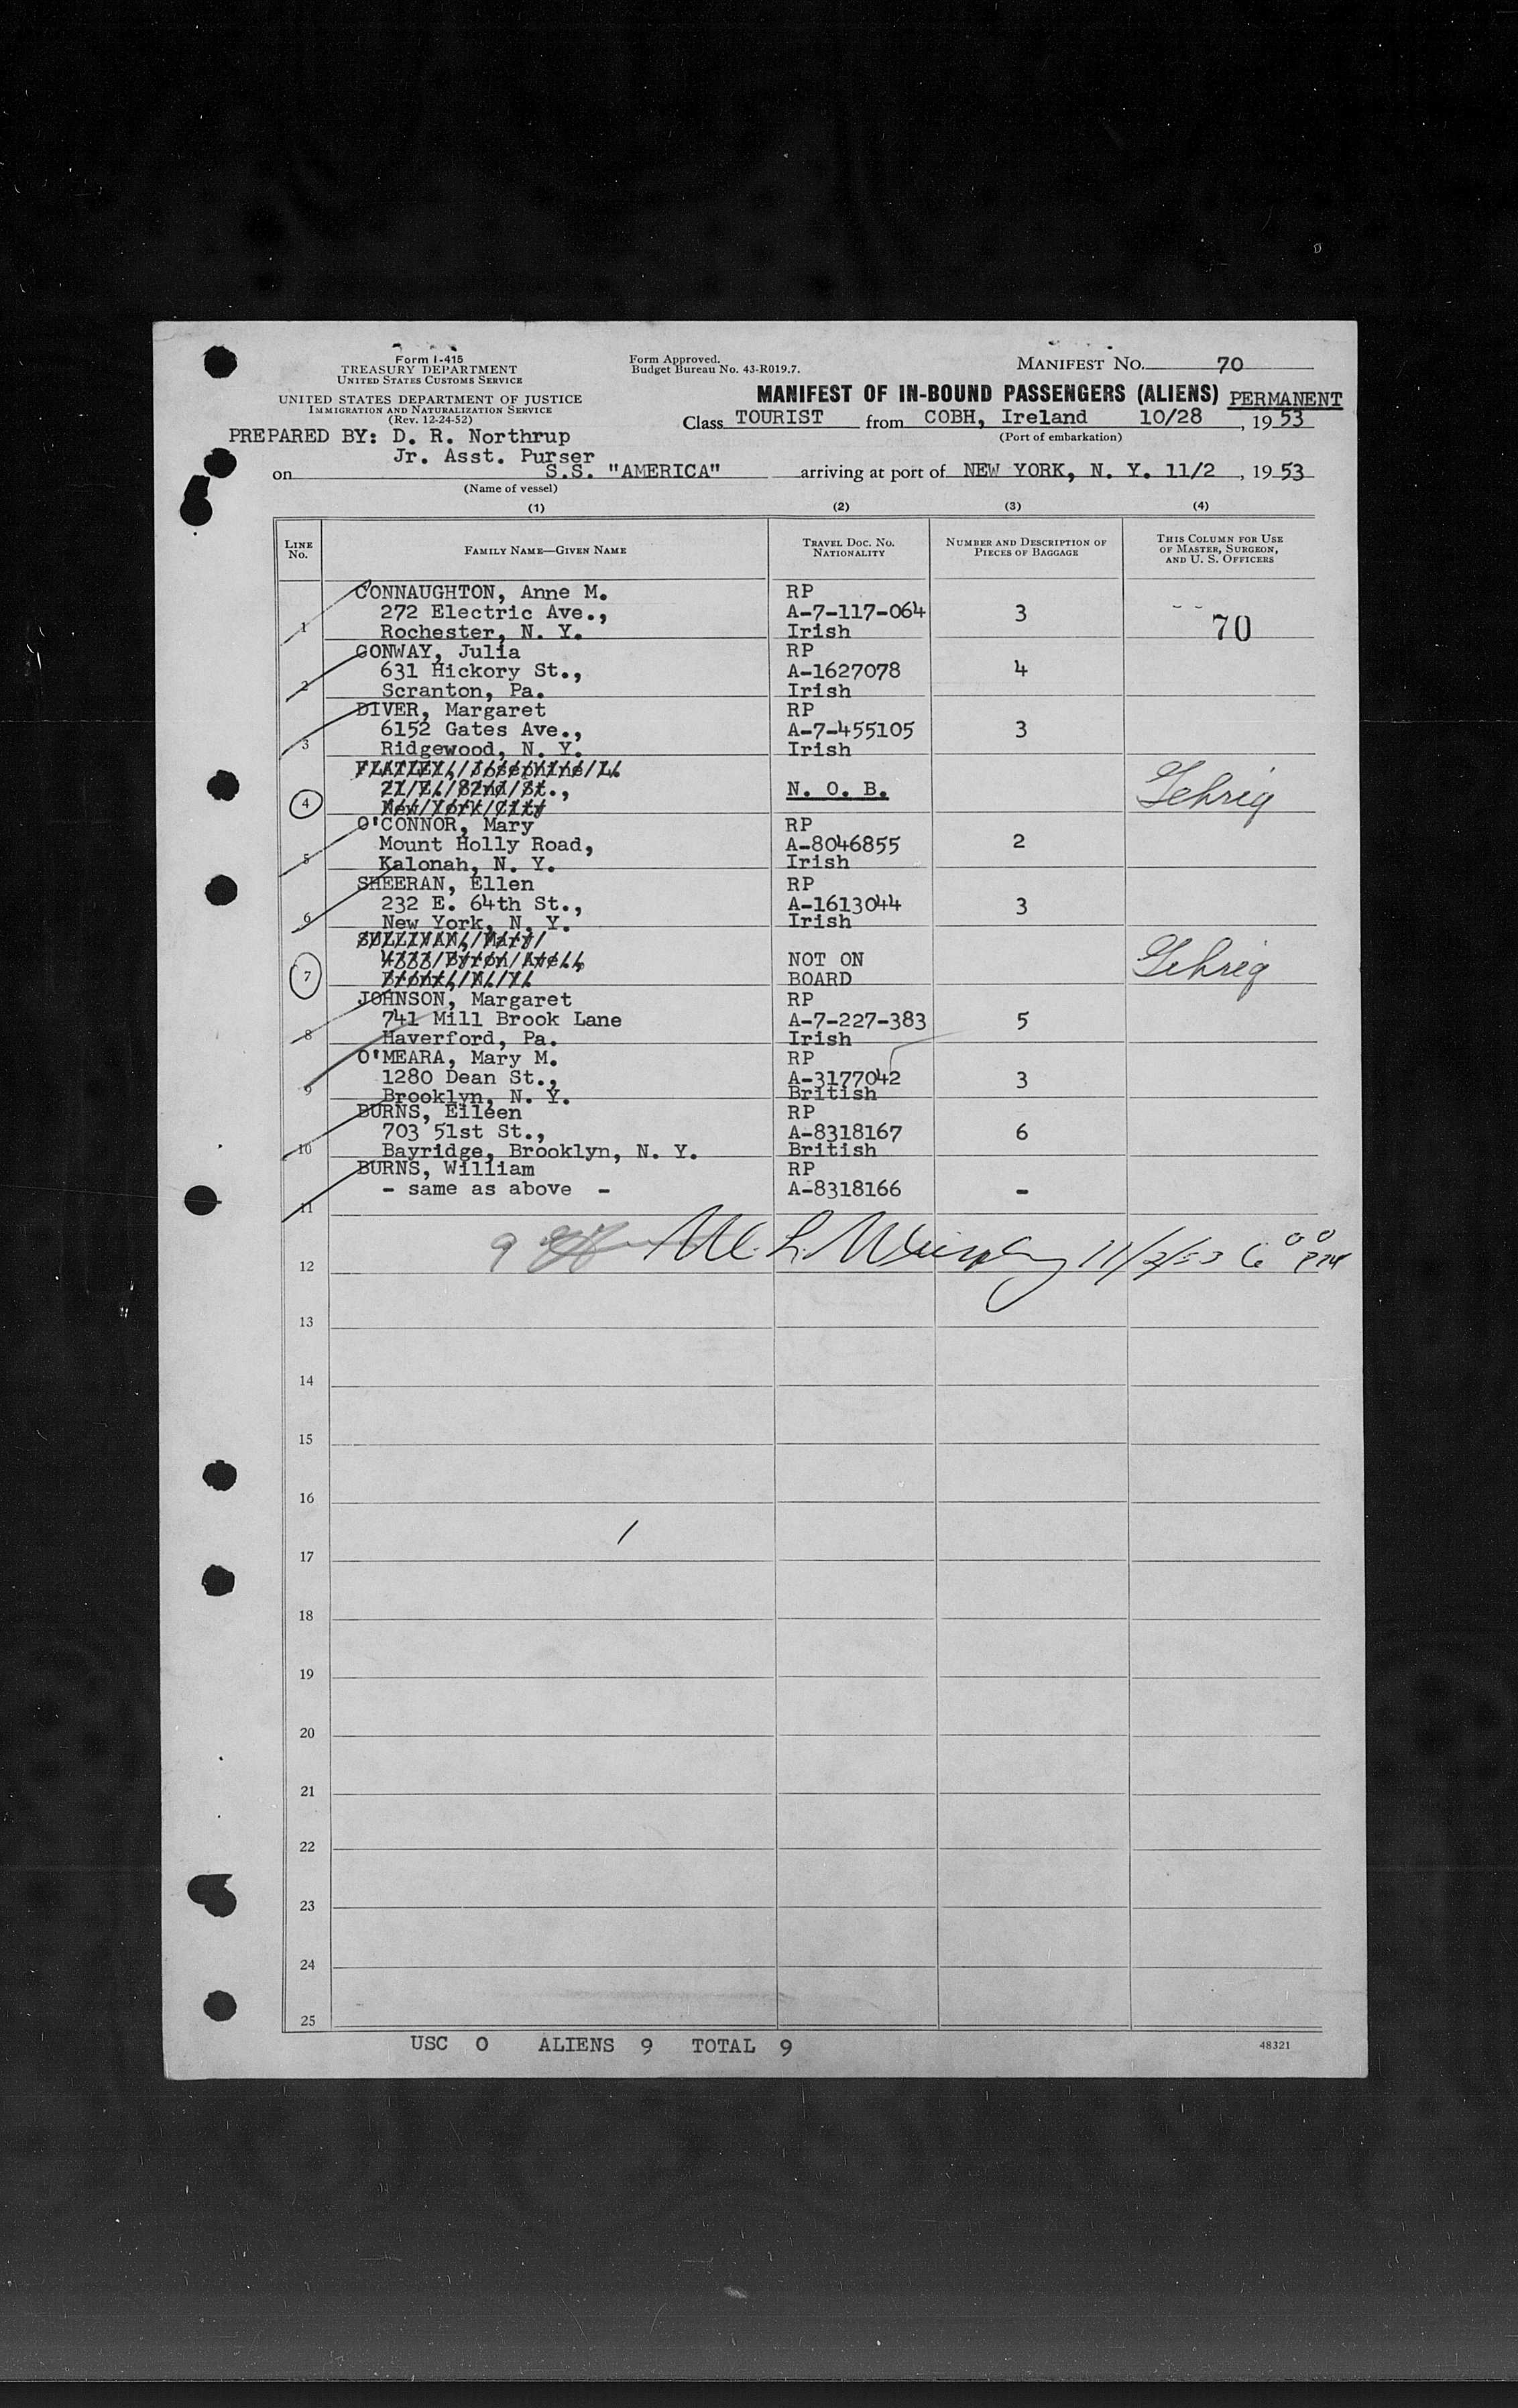 Form I-415
TREASURY DEPARTMENT
UNITED STATES CUSTOMS SERVICE
UNITED STATES DEPARTMENT OF JUSTICE
IMMIGRATION AND NATURALIZATION SERVICE
(Rev. 12-24-52)
Form Approved.
Budget Bureau No. 43-R019.7.
MANIFEST No. 70
MANIFEST OF IN-BOUND PASSENGERS (ALIENS) PERMANENT
Class TOURIST from COBH, Ireland 10/28, 1953
(Port of embarkation)
PREPARED BY: D. R. Northrup
Jr. Asst. Purser
on S.S. "AMERICA" arriving at port of NEW YORK, N. Y. 11/2, 1953
(Name of vessel)
(1) (2) (3) (4)
LINE No. FAMILY NAME—GIVEN NAME TRAVEL DOC. NO. NATIONALITY NUMBER AND DESCRIPTION OF PIECES OF BAGGAGE THIS COLUMN FOR USE OF MASTER, SURGEON, AND U. S. OFFICERS
CONNAUGHTON, Anne M. RP
272 Electric Ave., A-7-117-064 3
1 Rochester, N. Y. Irish 70
CONWAY, Julia RP
631 Hickory St., A-1627078 4
2 Scranton, Pa. Irish
DIVER, Margaret RP
6152 Gates Ave., A-7-455105 3
3 Ridgewood, N. Y. Irish
FLATLEY, Josephine L.
21 E. 82nd St., N. O. B. Gehrig
4 New York City
O'CONNOR, Mary RP
Mount Holly Road, A-8046855 2
5 Kalonah, N. Y. Irish
SHEERAN, Ellen RP
232 E. 64th St., A-1613044 3
6 New York, N. Y. Irish
SULLIVAN, Mary
Byron Ave., NOT ON Gehrig
7 Bronx, N. Y. BOARD
JOHNSON, Margaret RP
741 Mill Brook Lane A-7-227-383 5
8 Haverford, Pa. Irish
O'MEARA, Mary M. RP
1280 Dean St., A-3177042 3
9 Brooklyn, N. Y. British
BURNS, Eileen RP
703 51st St., A-8318167 6
10 Bayridge, Brooklyn, N. Y. British
BURNS, William RP
- same as above - A-8318166 -
11
12 9 M. L. Murphy 11/2/53 6 00 PM
13
14
15
16
17
18
19
20
21
22
23
24
25
USC 0 ALIENS 9 TOTAL 9
48321